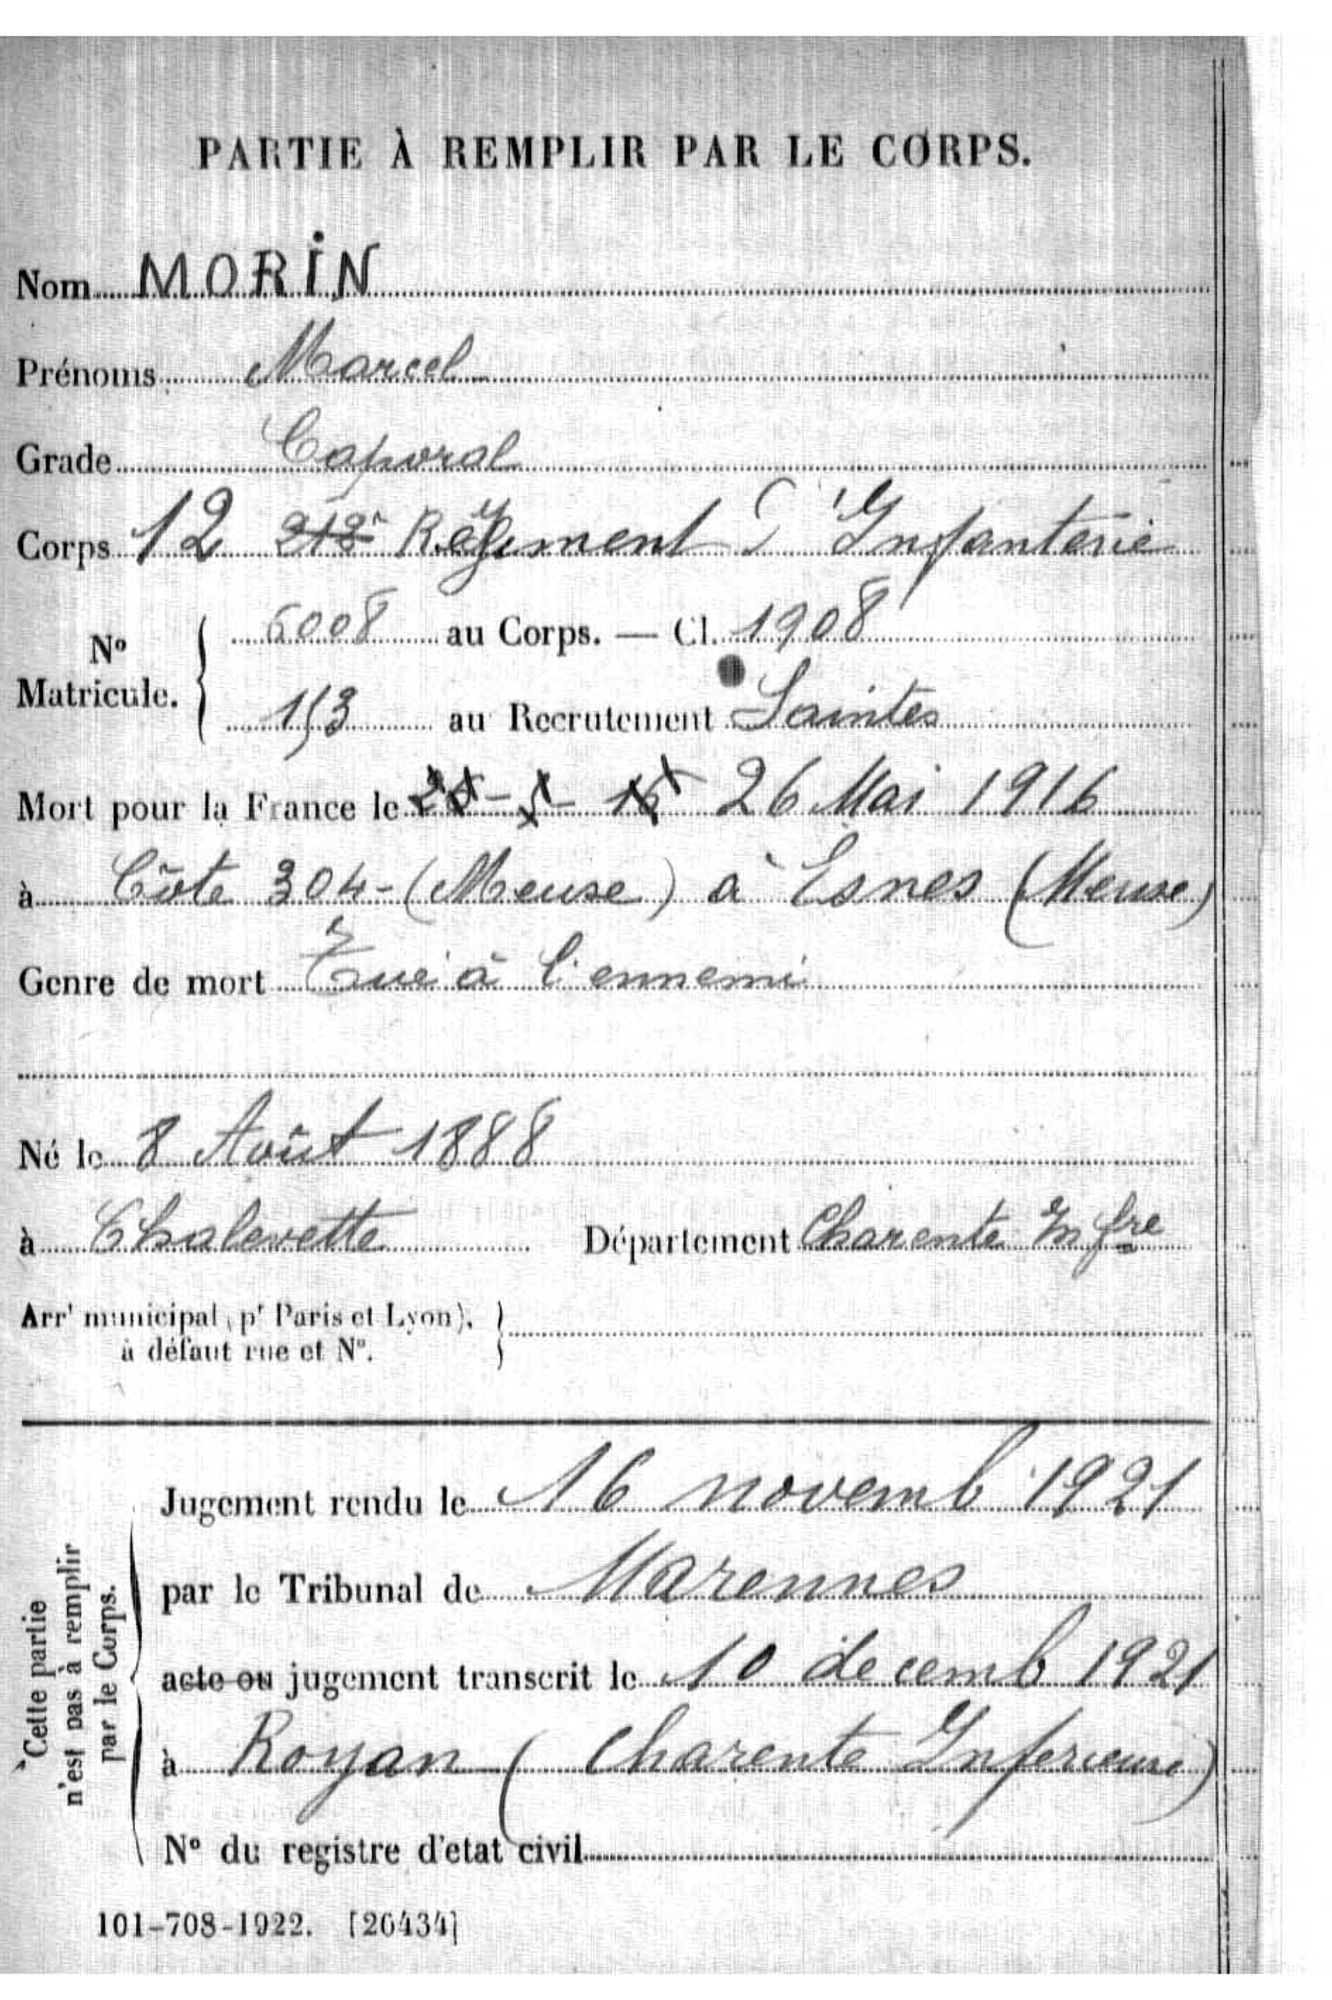 PARTIE À REMPLIR PAR LE CORPS.
Nom MORIN
Prénoms Marcel
Grade Caporal
Corps 12 212e Régiment d'Infanterie
No Matricule. 6008 au Corps. — Cl. 1908
153 au Recrutement Saintes
Mort pour la France le 26 Mai 1916
à Côte 304 - (Meuse) à Esnes (Meuse)
Genre de mort Tué à l'ennemi
Né le 8 Août 1888
à Chalevette Département Charente Infre
Arrt municipal (pr Paris et Lyon),
à défaut rue et No.
Cette partie
n'est pas à remplir
par le Corps.
Jugement rendu le 16 novemb 1921
par le Tribunal de Marennes
acte ou jugement transcrit le 10 decemb 1921
à Royan (Charente Inferieure)
No du registre d'etat civil
101-708-1922. [26434]